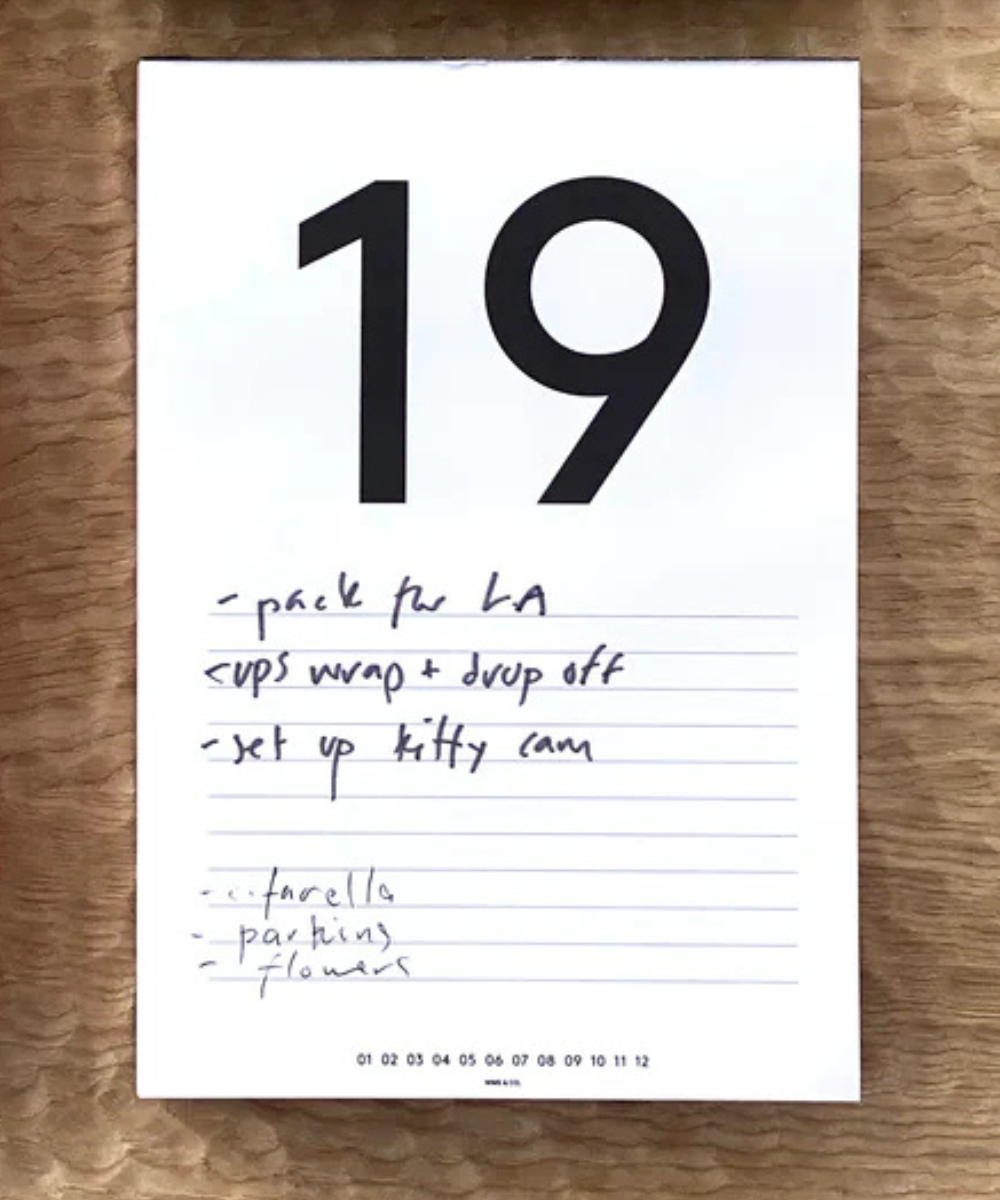 19
- pack for LA
- ups wrap + drop off
- set up kitty cam
- farella
- parking
- flowers
01 02 03 04 05 06 07 08 09 10 11 12